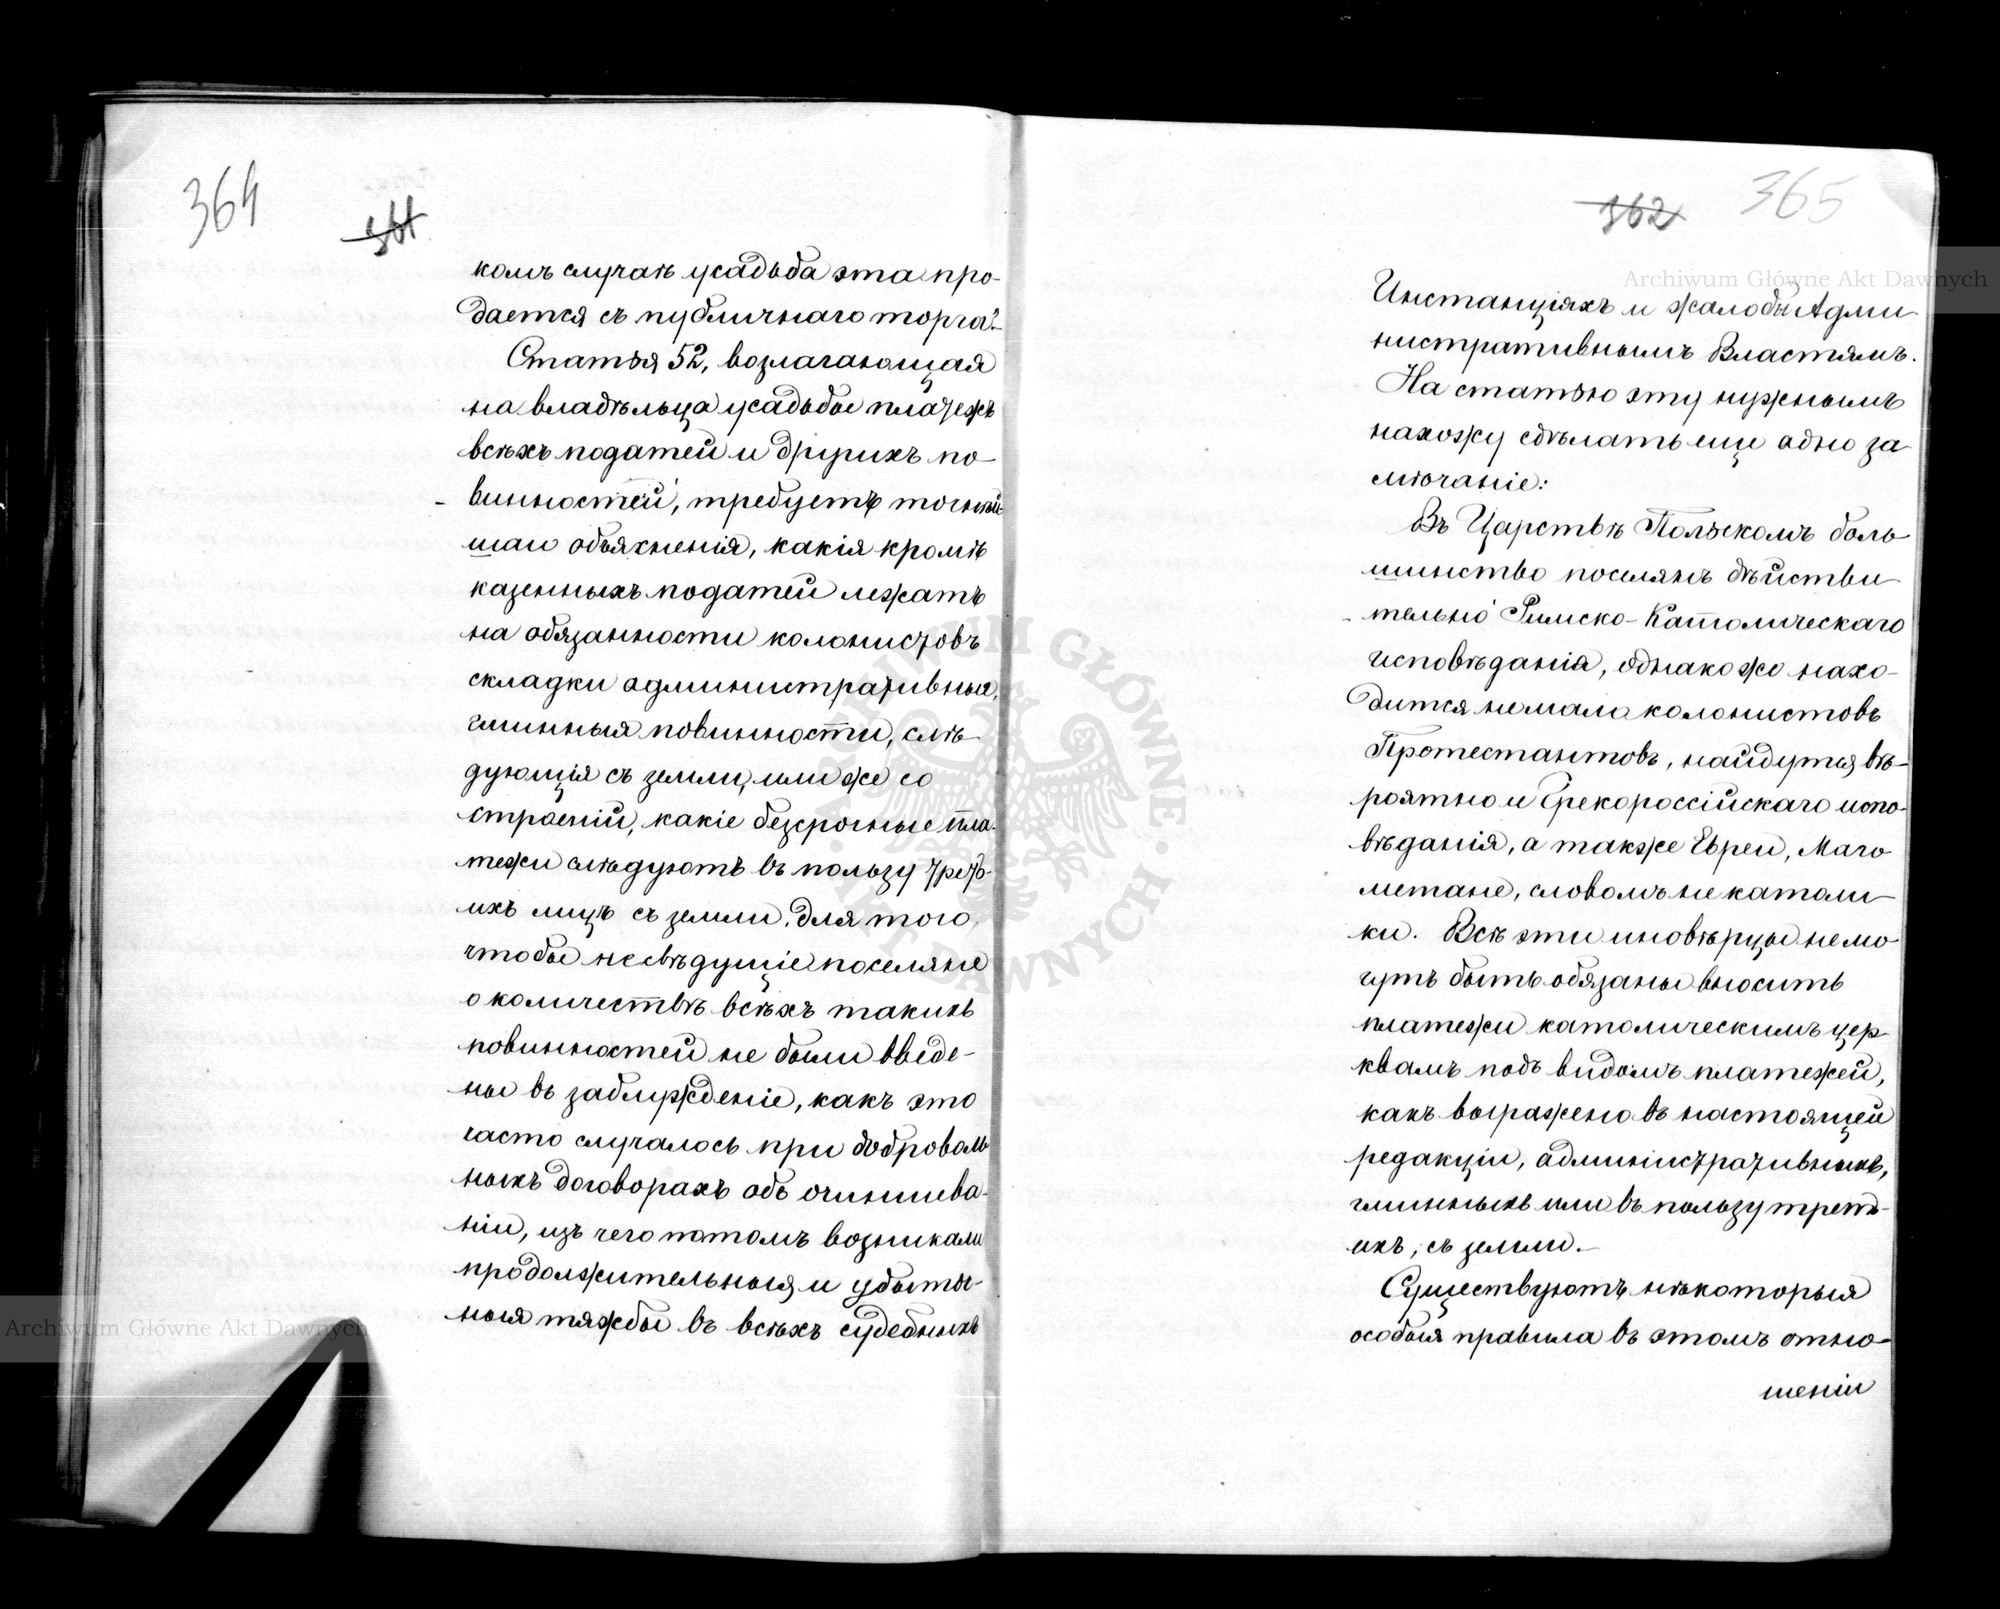 364
361
комъ случаѣ усадьба эта про-
дается съ публичнаго торга".
Статья 52, возлагающая
на владѣльца усадьбы платежъ
всѣхъ податей и другихъ по-
винностей, требуетъ точнѣй-
шаи объясненія, какія кромѣ
казенныхъ податей лежатъ
на обязанности колонистовъ
складки административныя,
гминныя повинности, слѣ-
дующія съ земли, или же со
строеній, какіе безсрочные пла-
тежи слѣдуютъ въ пользу треть-
ихъ лицъ съ земли, для того
чтобы несвѣдущіе поселяне
о количествѣ всѣхъ такихъ
повинностей не были введе-
ны въ заблужденіе, какъ это
часто случалось при доброволь
ныхъ договорахъ объ очиншева-
ніи, изъ чего потомъ возникали
продолжительныя и убыточ-
ныя тяжбы въ всѣхъ судебныхъ
365
362
Инстанціяхъ и жалобы Адми-
нистративнымъ Властямъ.
На статью эту нужнымъ
нахожу сдѣлать еще одно за
мѣчаніе:
Въ Царствѣ Польскомъ боль-
шинство поселянъ дѣйстви-
тельно Римско-Католическаго
исповѣданія, однако же нахо-
дится немало колонистовъ
Протестантовъ, найдутся вѣ-
роятно и Грекороссійскаго испо-
вѣданія, а также Евреи, Маго
метане, словомъ не католи-
ки. Всѣ эти иновѣрцы не мо
гутъ быть обязаны вносить
платежи католическимъ цер
квамъ подъ видомъ платежей,
какъ выражено въ настоящей
редакціи, административныхъ,
гминныхъ или въ пользу треть-
ихъ, съ земли.—
Существуютъ нѣкоторыя
особыя правила въ этомъ отно-
шеніи
Archiwum Główne Akt Dawnych
Archiwum Główne Akt Dawnych
ARCHIWUM GŁÓWNE AKT DAWNYCH